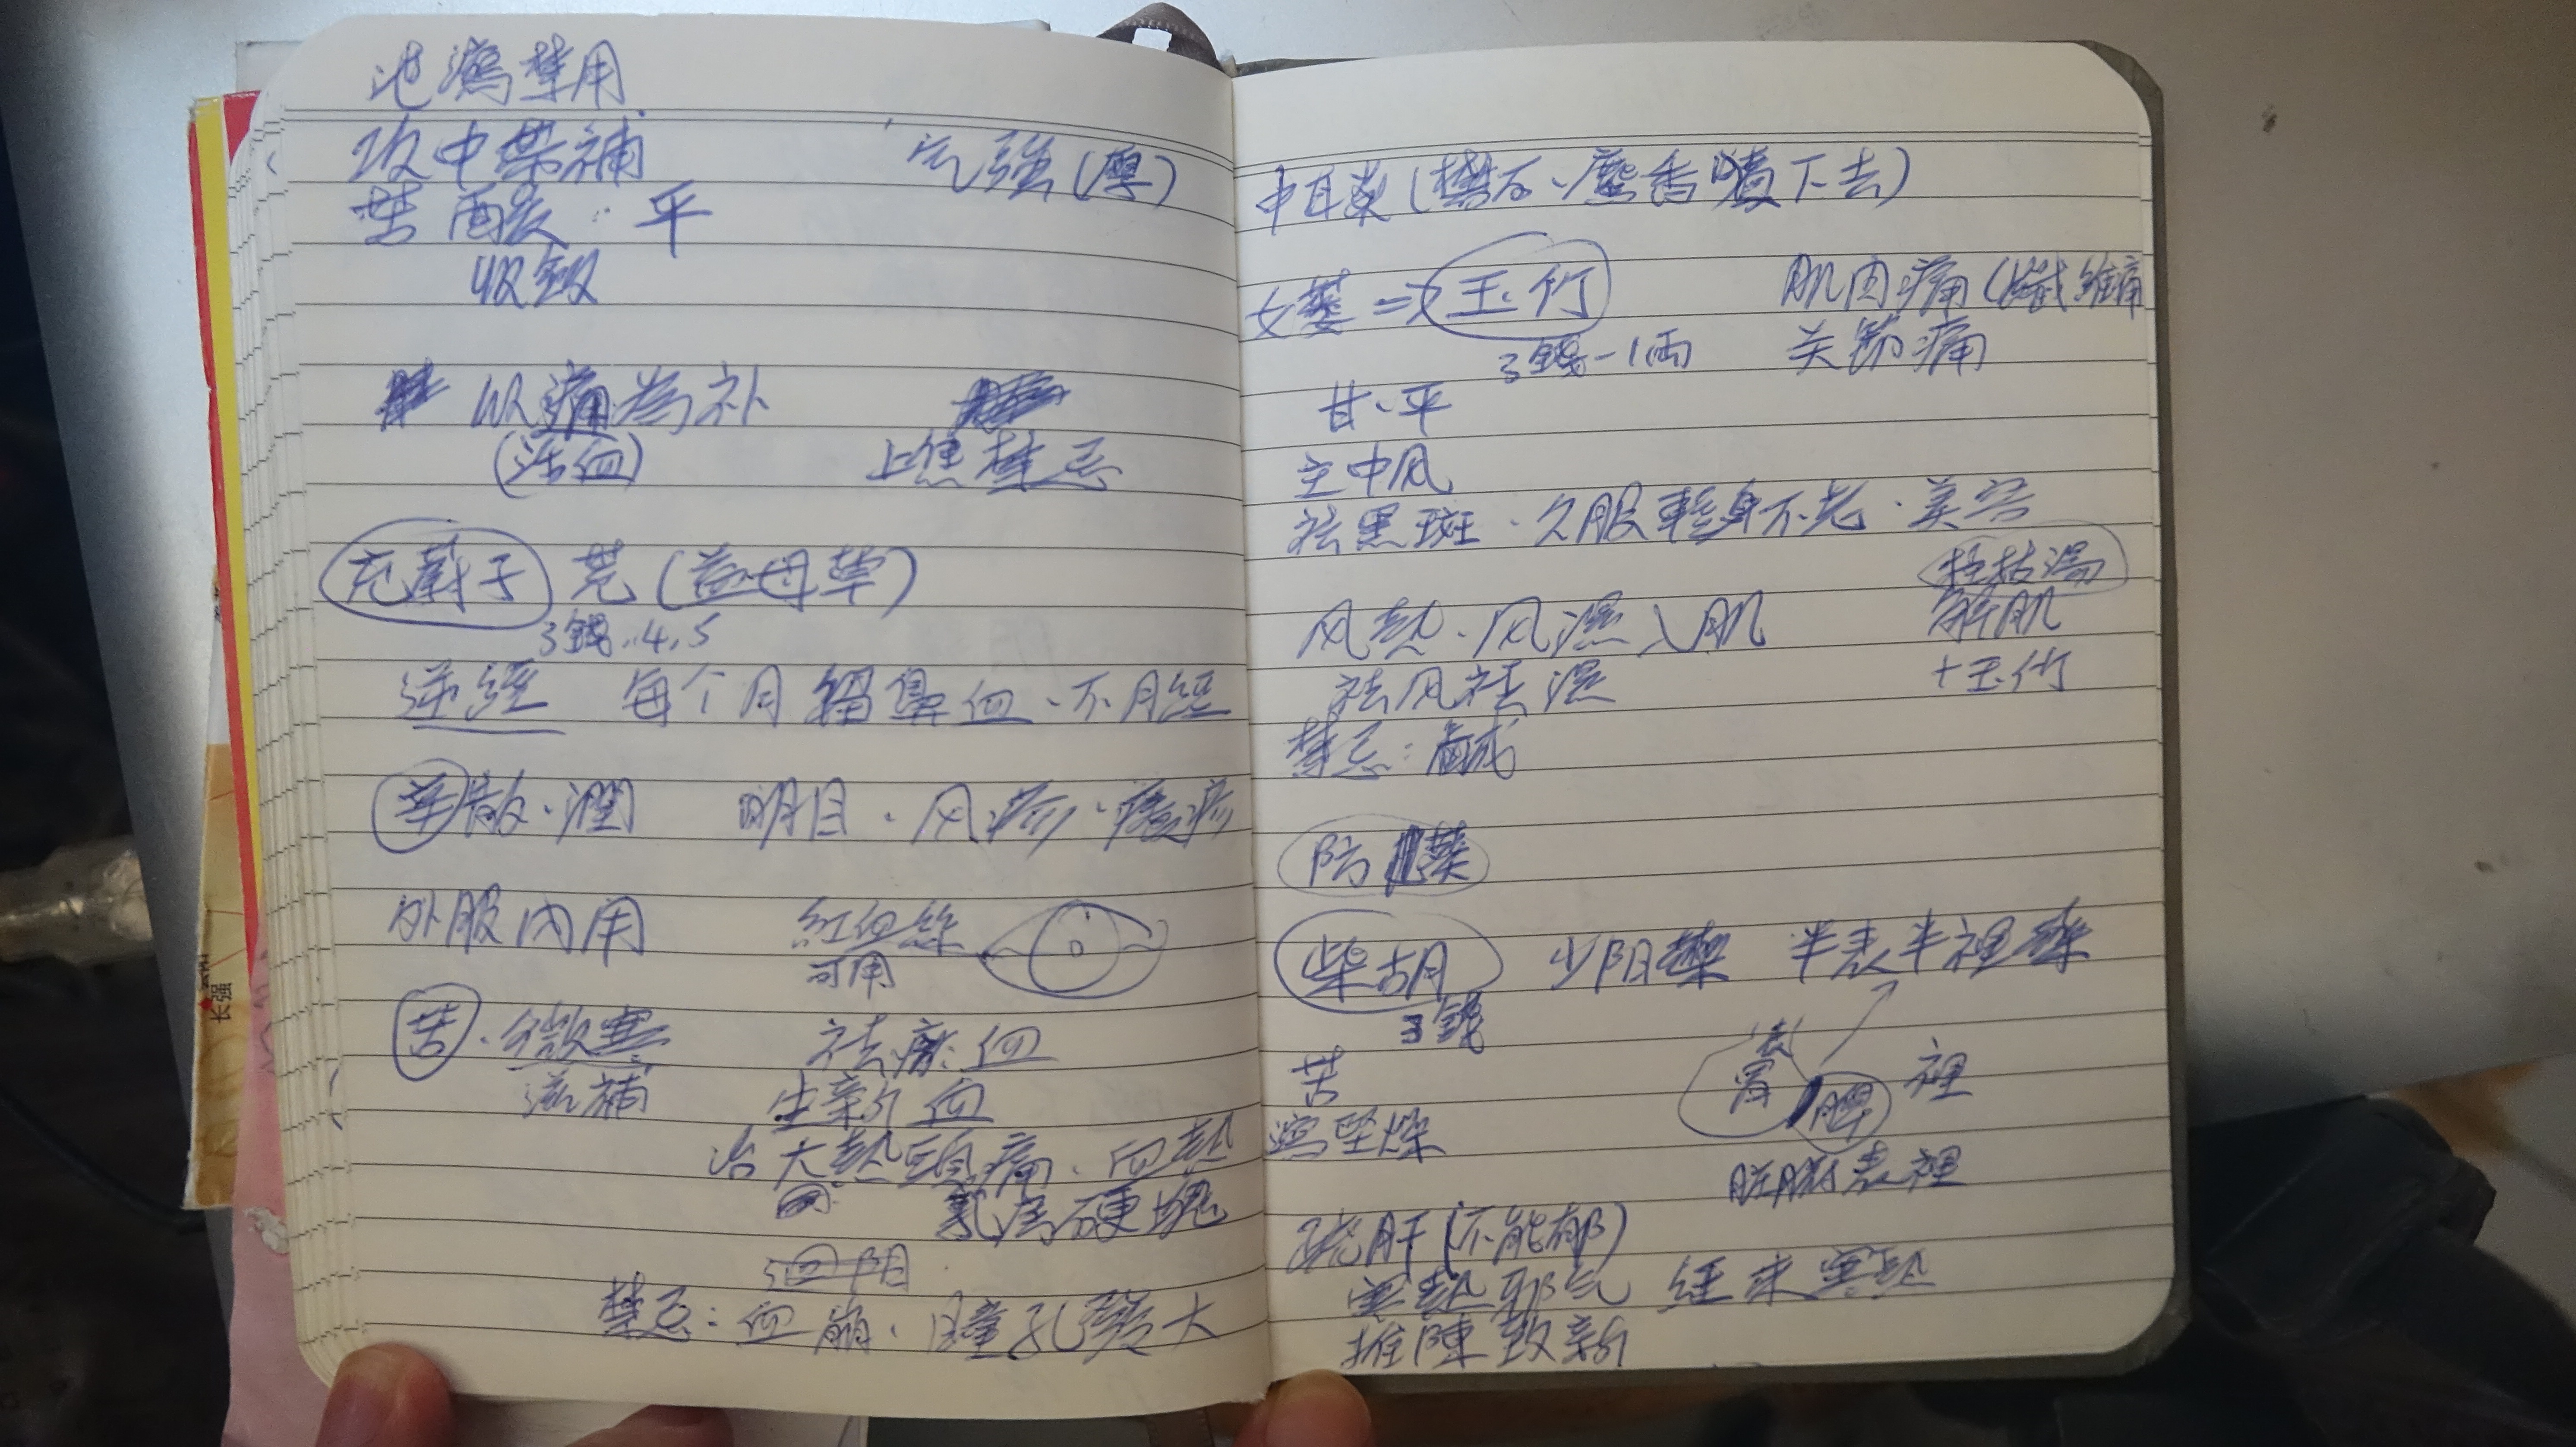 泄瀉禁用
攻中帶補 气強(厚)
苦酸·平
收斂
以通為补
(活血) 上焦禁忌
茺蔚子 茺(益母草)
3錢.4.5
逆經 每个月 鼻血、不月經
辛散·潤 明目·风疹·癮疹
外服內用 紅血絲
可用
苦·微寒 祛瘀血
滋補 生新血
治大熱頭痛·血熱
乳房硬塊
回阴
禁忌:血崩·瞳孔 大
中耳炎(礬石、麝香噴下去)
女萎 => 玉竹 肌肉痛(纖維痛
3錢-1兩 关節痛
甘·平
主中风
祛黑斑·久服輕身不老·美容
桂枝湯
风熱·风濕入肌 解肌
祛风祛濕 +玉竹
禁忌:鹹
防葵
柴胡 少阳藥 半表半裡藥
3錢
表
苦 胃 脾 裡
瀉堅燥
脏腑表裡
疏肝(不能郁)
寒熱邪气 經来寒熱
推陳致新
长强